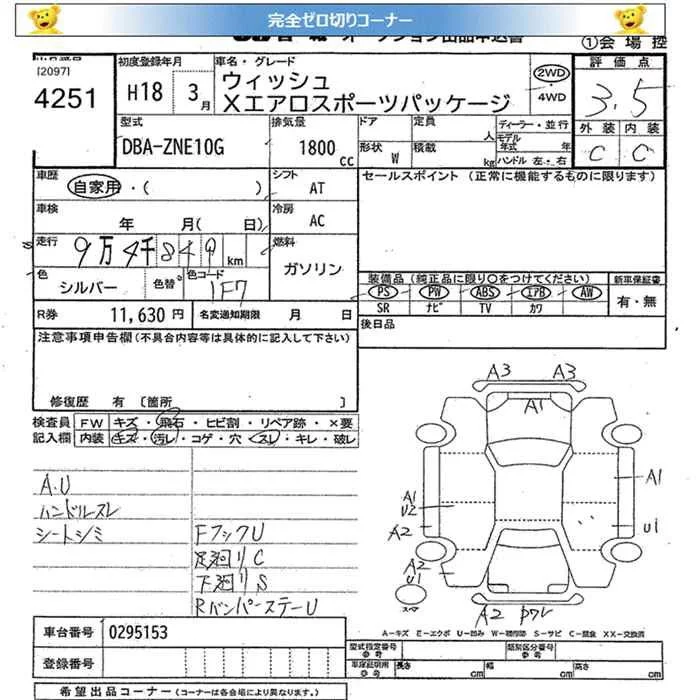 完全ゼロ切りコーナー
①会場控
[2097]
4251
初度登録年月
H18 3月
車名・グレード
ウィッシュ
Xエアロスポーツパッケージ
2WD
・4WD
評価点
3.5
外装 内装
C C
型式
DBA-ZNE10G
排気量
1800cc
ドア 定員 人
形状 W 積載 kg
ディーラー・並行
モデル年式 年
ハンドル 左・右
車歴
自家用・( )
シフト AT
セールスポイント (正常に機能するものに限ります)
車検 年 月( 日)
冷房 AC
走行 9万4千849km
燃料 ガソリン
色 シルバー
色替
色コード 1F7
装備品 (純正品に限り○をつけてください)
新車保証書
PS PW ABS エアB AW
SR ナビ TV カワ
有・無
R券 11,630円
名変通知期限 月 日
後日品
注意事項申告欄(不具合内容等は具体的に記入して下さい)
修復歴 有 [箇所 ]
検査員記入欄
FW キズ・飛石・ヒビ割・リペア跡・×要
内装 キズ・汚レ・コゲ・穴・スレ・キレ・破レ
A.U
ハンドルスレ
シートシミ
FフックU
足廻リC
下廻リS
RバンパーステーU
A3 A3
A1
A1
U2
A2
A2
U1
A1
U1
スペア
A2 ワレ
A－キズ E－エクボ U－凹み W－補修跡 S－サビ C－腐食 XX－交換済
車台番号 0295153
登録番号
型式指定番号 参考
類別区分番号 参考
車庫証明用 参考
長さ cm 幅 cm 高さ cm
希望出品コーナー (コーナーは各会場により異なります。)